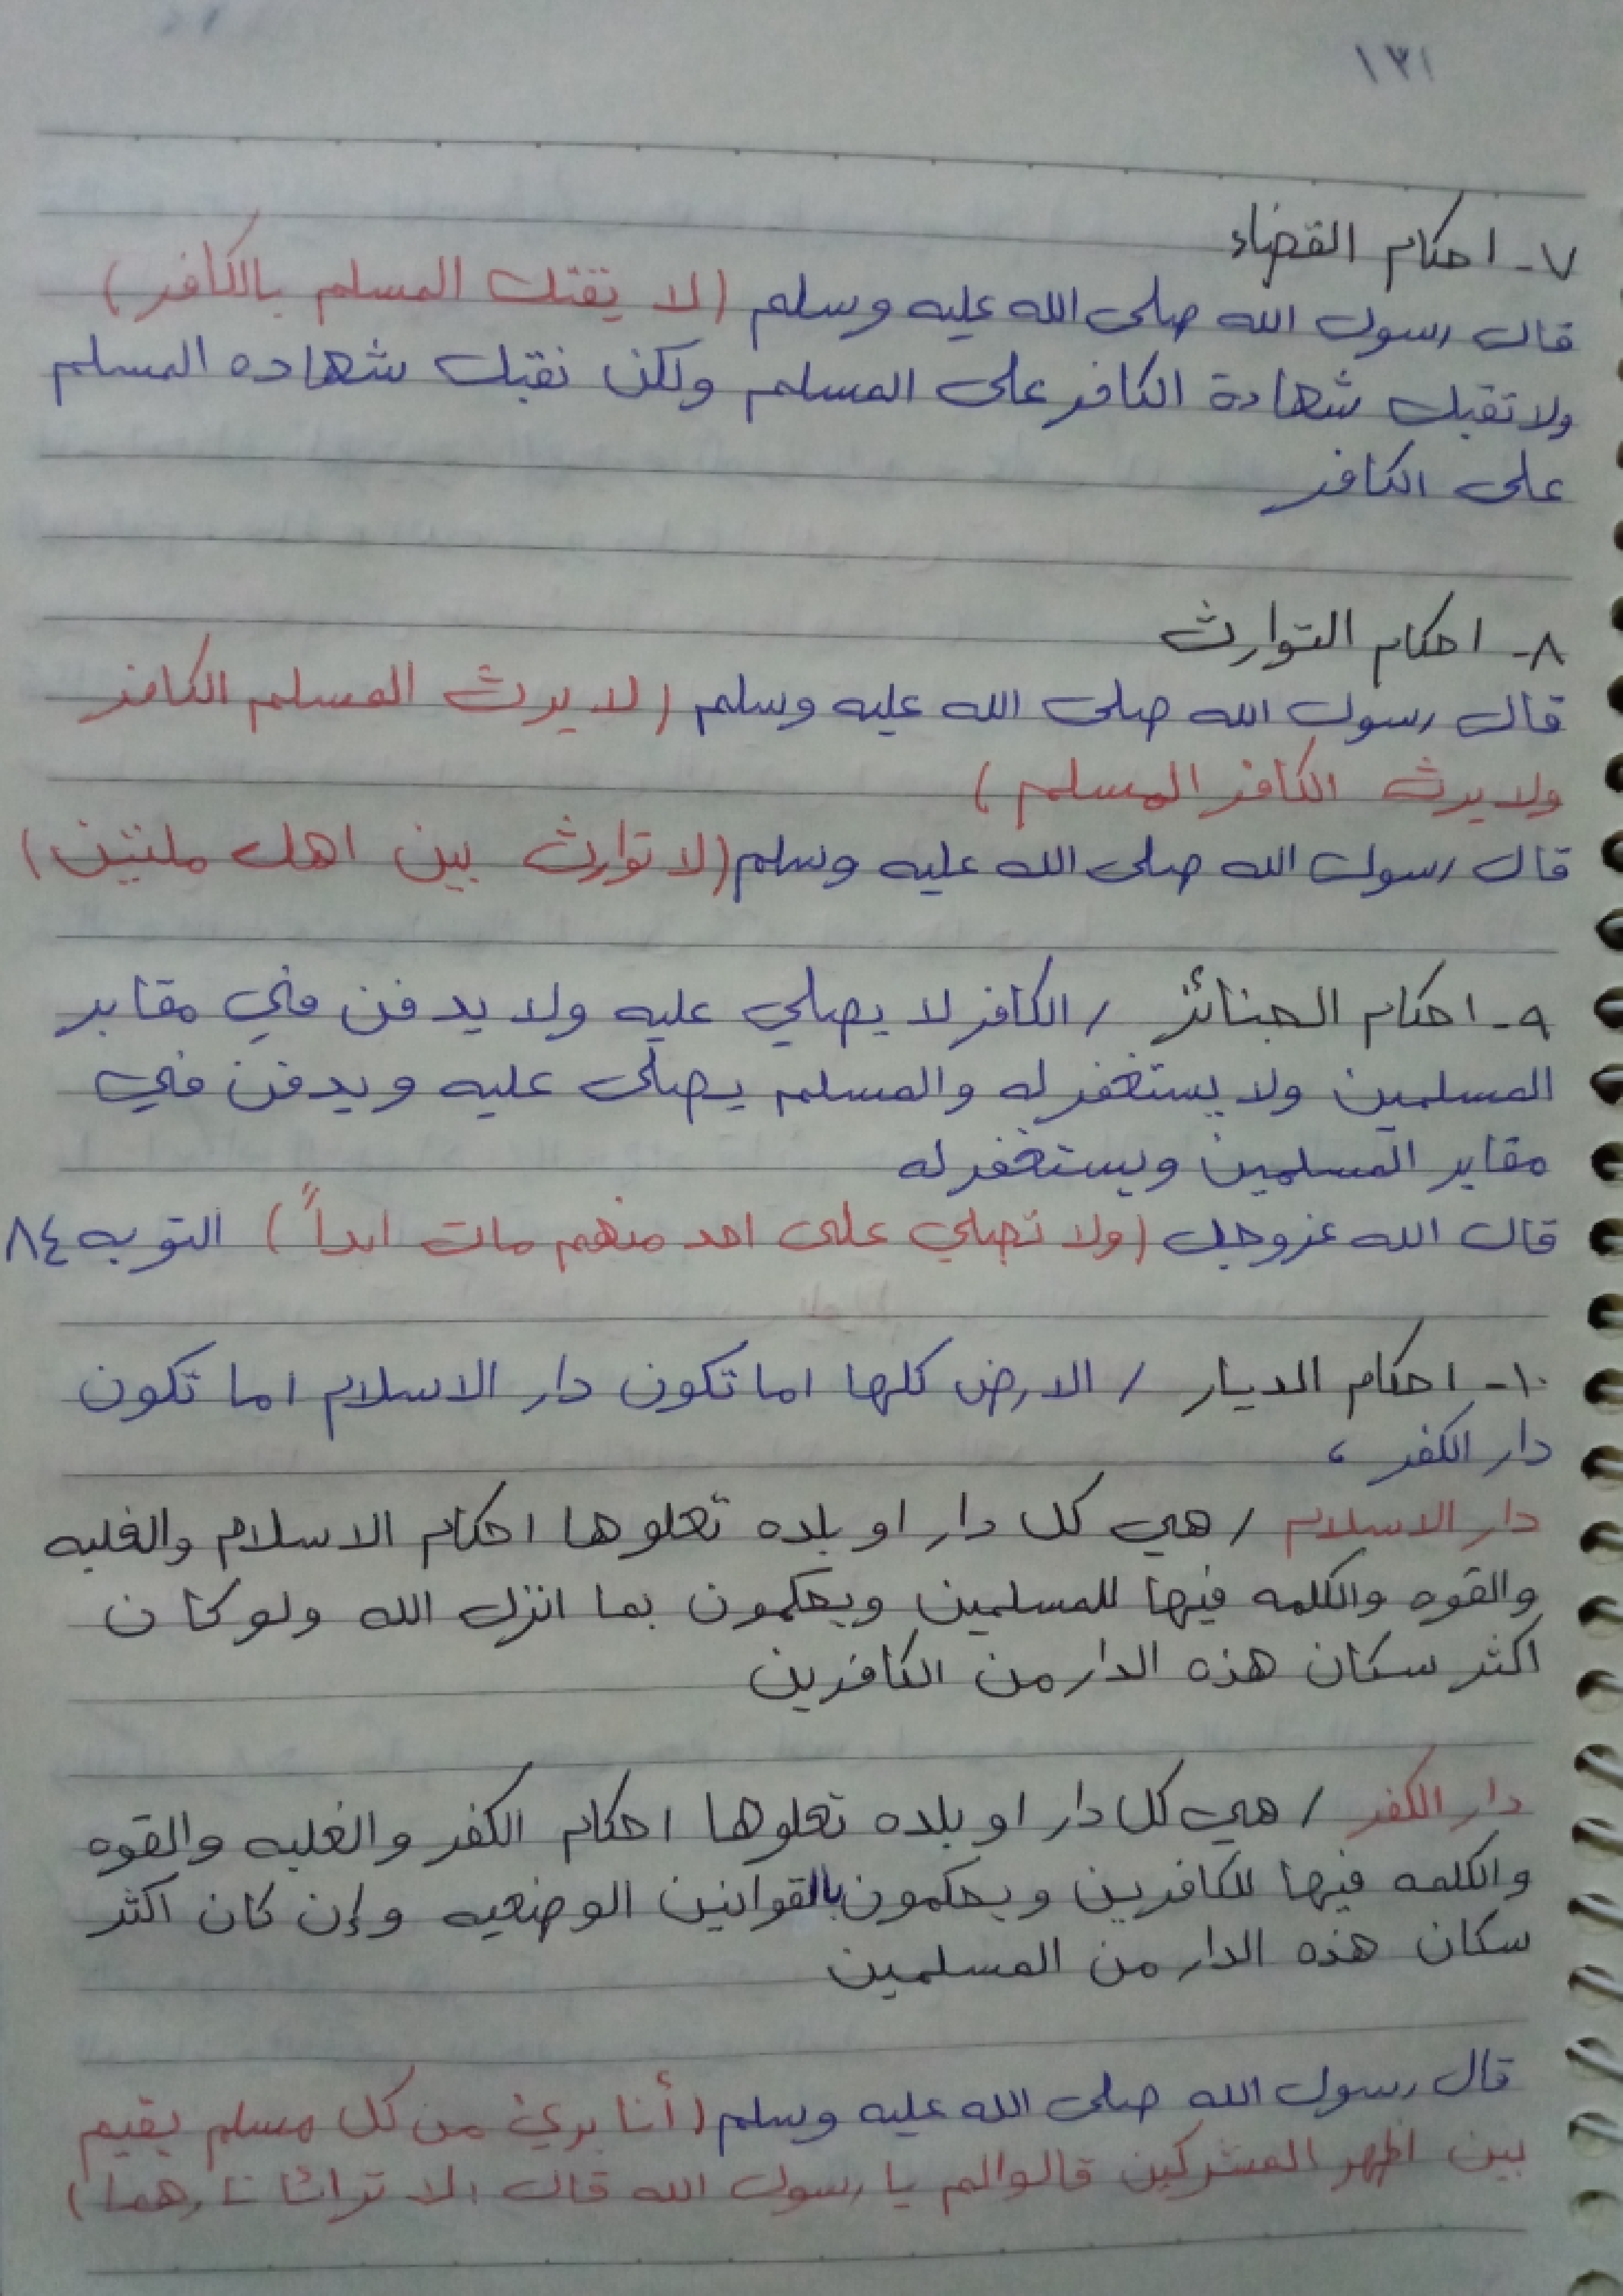 ١٣١
٧- احكام القضاء
قال رسول الله صلى الله عليه وسلم (لا يقتل المسلم بالكافر)
ولا تقبل شهادة الكافر على المسلم ولكن نقبل شهاده المسلم
على الكافر
٨- احكام التوارث
قال رسول الله صلى الله عليه وسلم (لا يرث المسلم الكافر
ولا يرث الكافر المسلم)
قال رسول الله صلى الله عليه وسلم (لا توارث بين اهل ملتين)
٩- احكام الجنائز / الكافر لا يصلي عليه ولا يدفن في مقابر
المسلمين ولا يستغفر له والمسلم يصلى عليه ويدفن في
مقابر المسلمين ويستغفر له
قال الله عزوجل (ولا تصلي على احد منهم مات ابداً) التوبه ٨٤
١٠- احكام الديار / الارض كلها اما تكون دار الاسلام اما تكون
دار الكفر ،
دار الاسلام / هي كل دار او بلده تعلوها احكام الاسلام والغلبه
والقوه والكلمه فيها للمسلمين ويحكمون بما انزل الله ولو كان
اكثر سكان هذه الدار من الكافرين
دار الكفر / هي كل دار او بلده تعلوها احكام الكفر والغلبه والقوه
والكلمه فيها للكافرين ويحكمون بالقوانين الوضعيه وإن كان اكثر
سكان هذه الدار من المسلمين
قال رسول الله صلى الله عليه وسلم (أنا بريئ من كل مسلم يقيم
بين اظهر المشركين قالوا لم يا رسول الله قال الا تراثا نارهما)